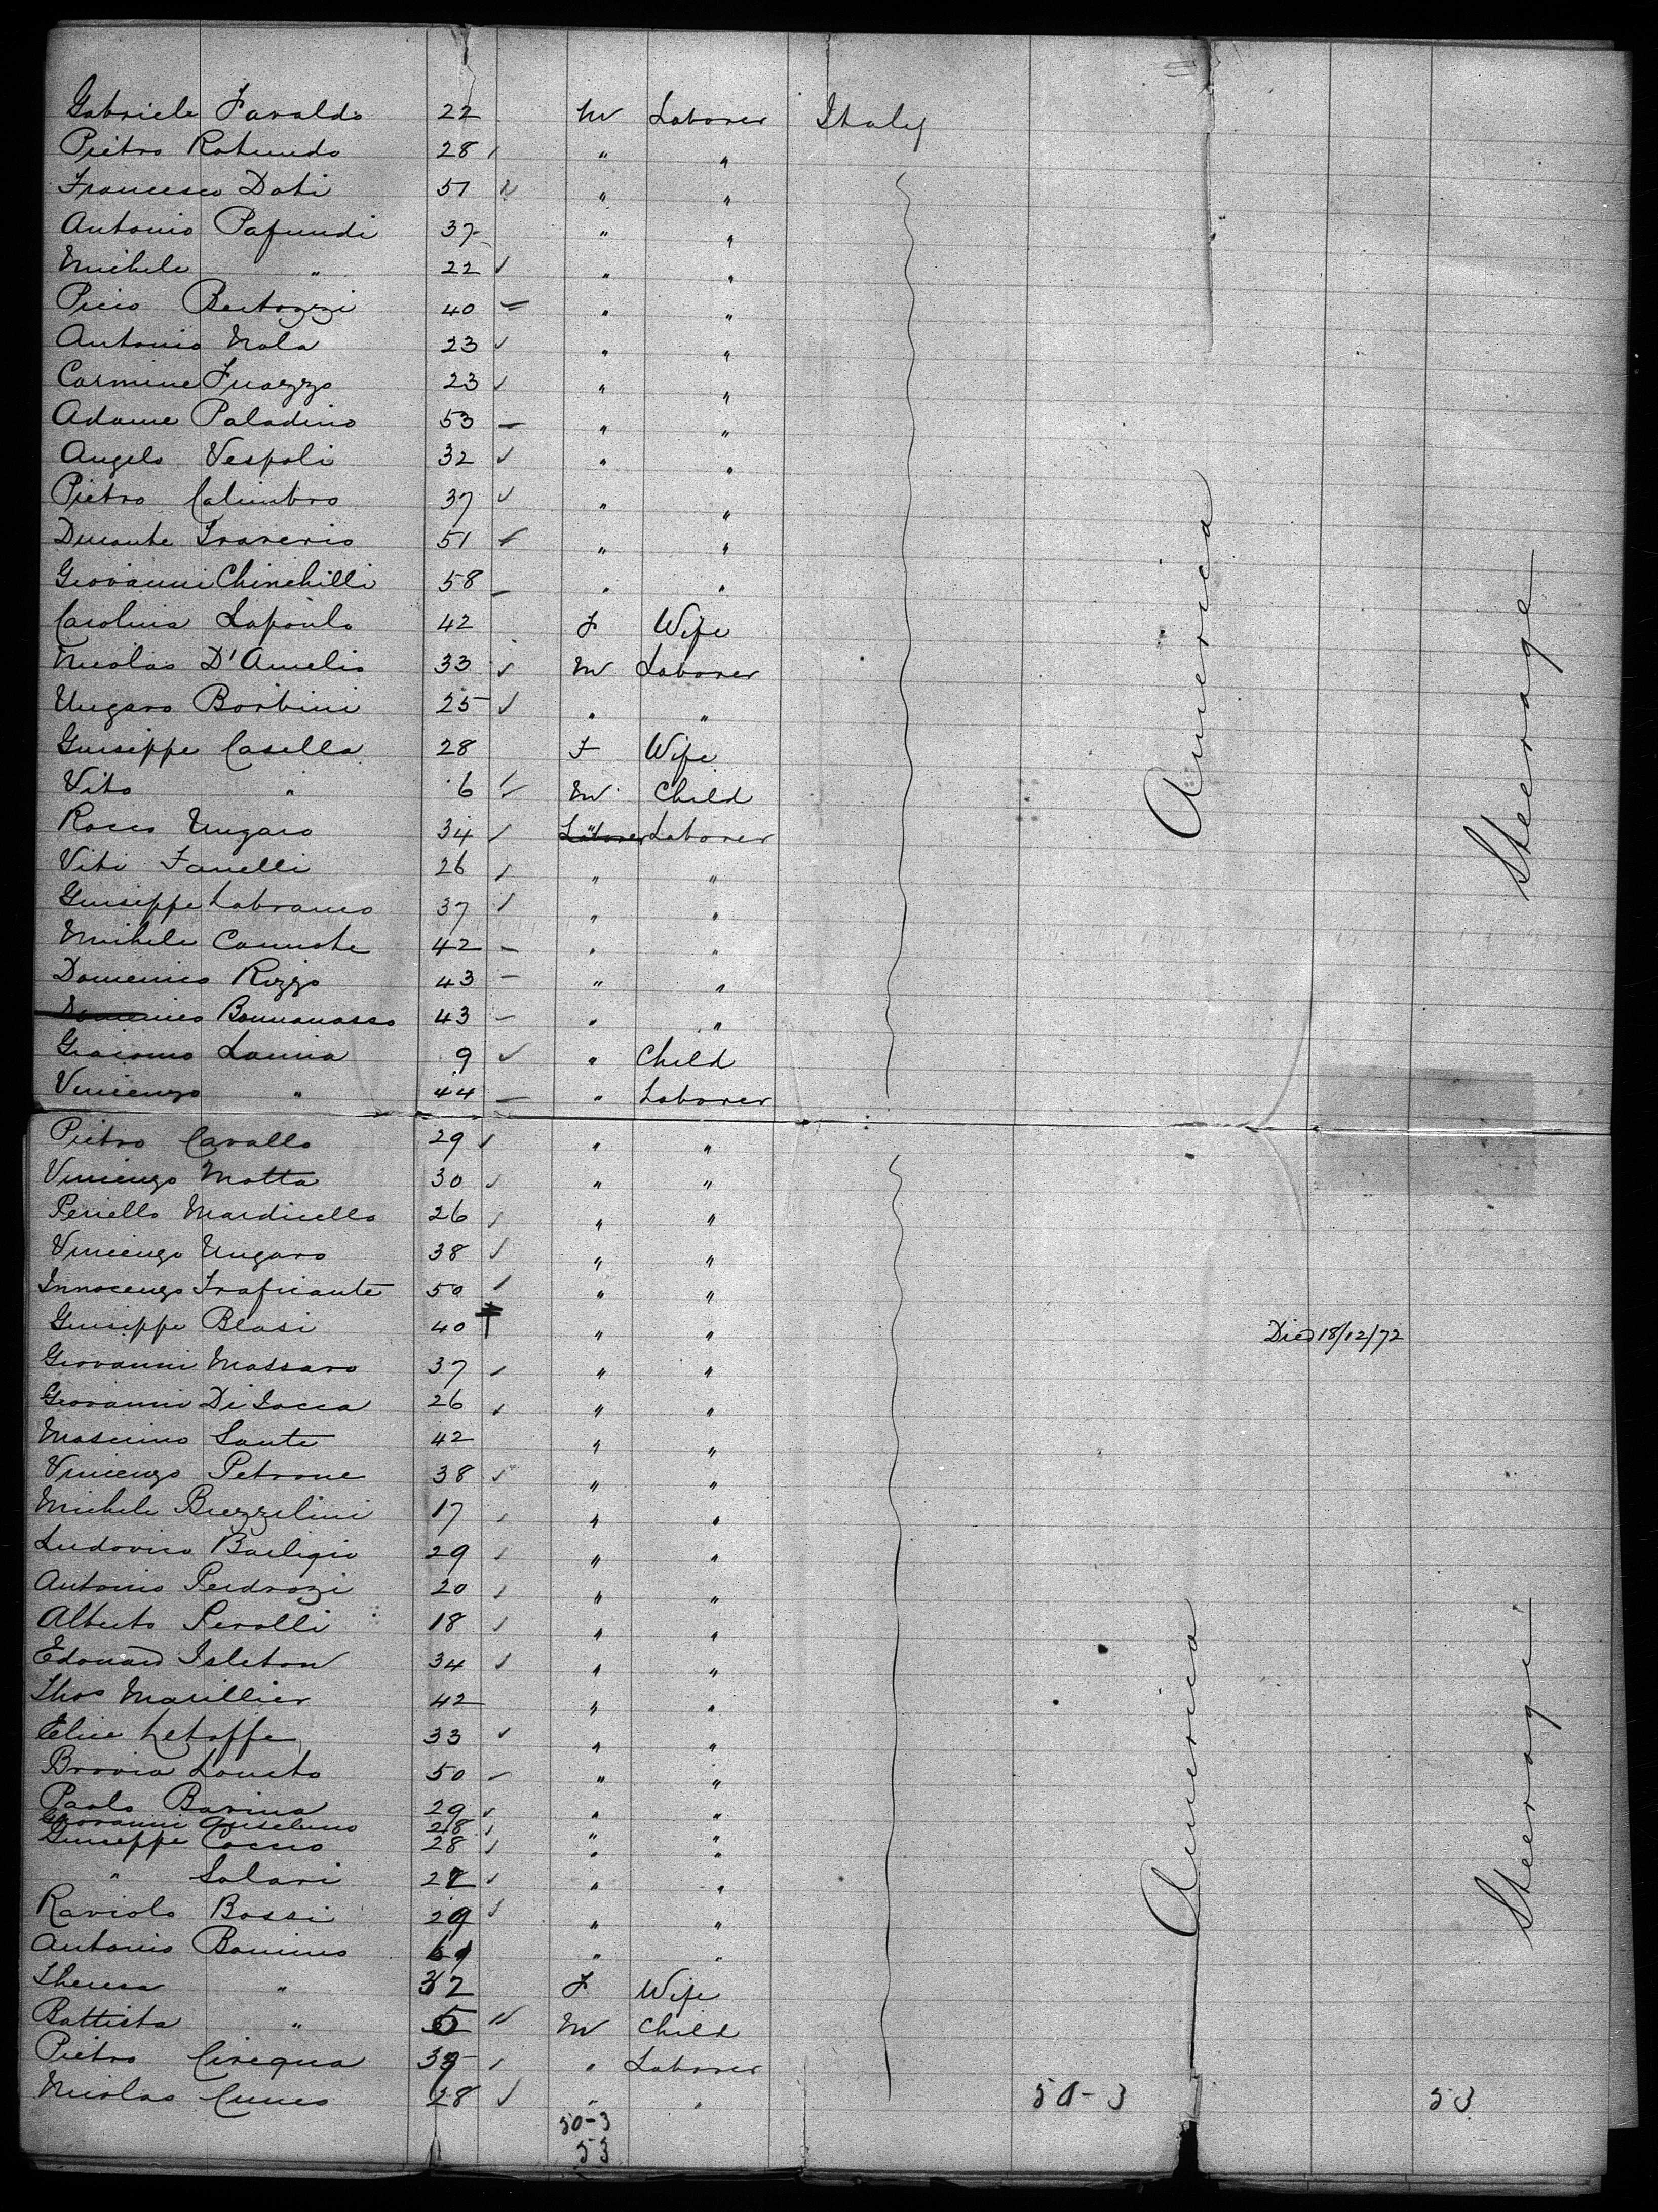 Gabriele Favaldo 22 M Laborer Italy
Pietro Rotundo 28 " "
Francesco Doti 51 " "
Antonio Pafundi 37 " "
Michele " 22 " "
Bertozzi 40 " "
Antonio Nola 23 " "
Carmine 23 " "
Adame Paladino 53 " "
Angelo Vespoli 32 " "
Pietro Calimbro 37 " "
Durante 51 " "
Giovanni Chinchilli 58 " "
Carolina 42 F Wife
Nicolas D'Amelio 33 M Laborer
Ungaro Borbini 25 " "
Guiseppe Casella 28 F Wife
Vito " 6 M Child
Rocco Ungaro 34 Laborer Laborer
Viti Fanelli 26 " "
Guiseppe Labranco 37 " "
Michele 42 " "
Domenico Rizzo 43 " "
Domenico Bonnanasso 43 " "
Giacomo Lauria 9 " Child
Vincenzo " 44 " Laborer
Pietro Cavallo 29 " "
Vincenzo Motta 30 " "
Periello Mardicello 26 " "
Vincenzo Ungaro 38 " "
Innocenzo Traficante 50 " "
Guiseppe Blasi 40 " " Died 18/12/72
Giovanni Massaro 37 " "
Giovanni Di Iacca 26 " "
Sante 42 " "
Vincenzo Petrone 38 " "
Michele Buzzelini 17 " "
Ludovico 29 " "
Antonio Pedrozi 20 " "
Alberto Perolli 18 " "
Edouard Isleton 34 " "
Thos Marillier 42 " "
Elice Letoffe 33 " "
Brovia Loneto 50 " "
Paolo Barina 29 " "
Giovanni Anselmo 28 " "
Guiseppe Cocco 28 " "
" Solari 22 " "
Raviolo Bossi 29 " "
Antonio Bonino 61 " "
Theresa " 32 F Wife
Battista " 5 M Child
Pietro Cirequa 39 " Laborer
Nicolas Cuneo 28 " " 50-3 53
50-3
53
America
Steerage
America
Steerage